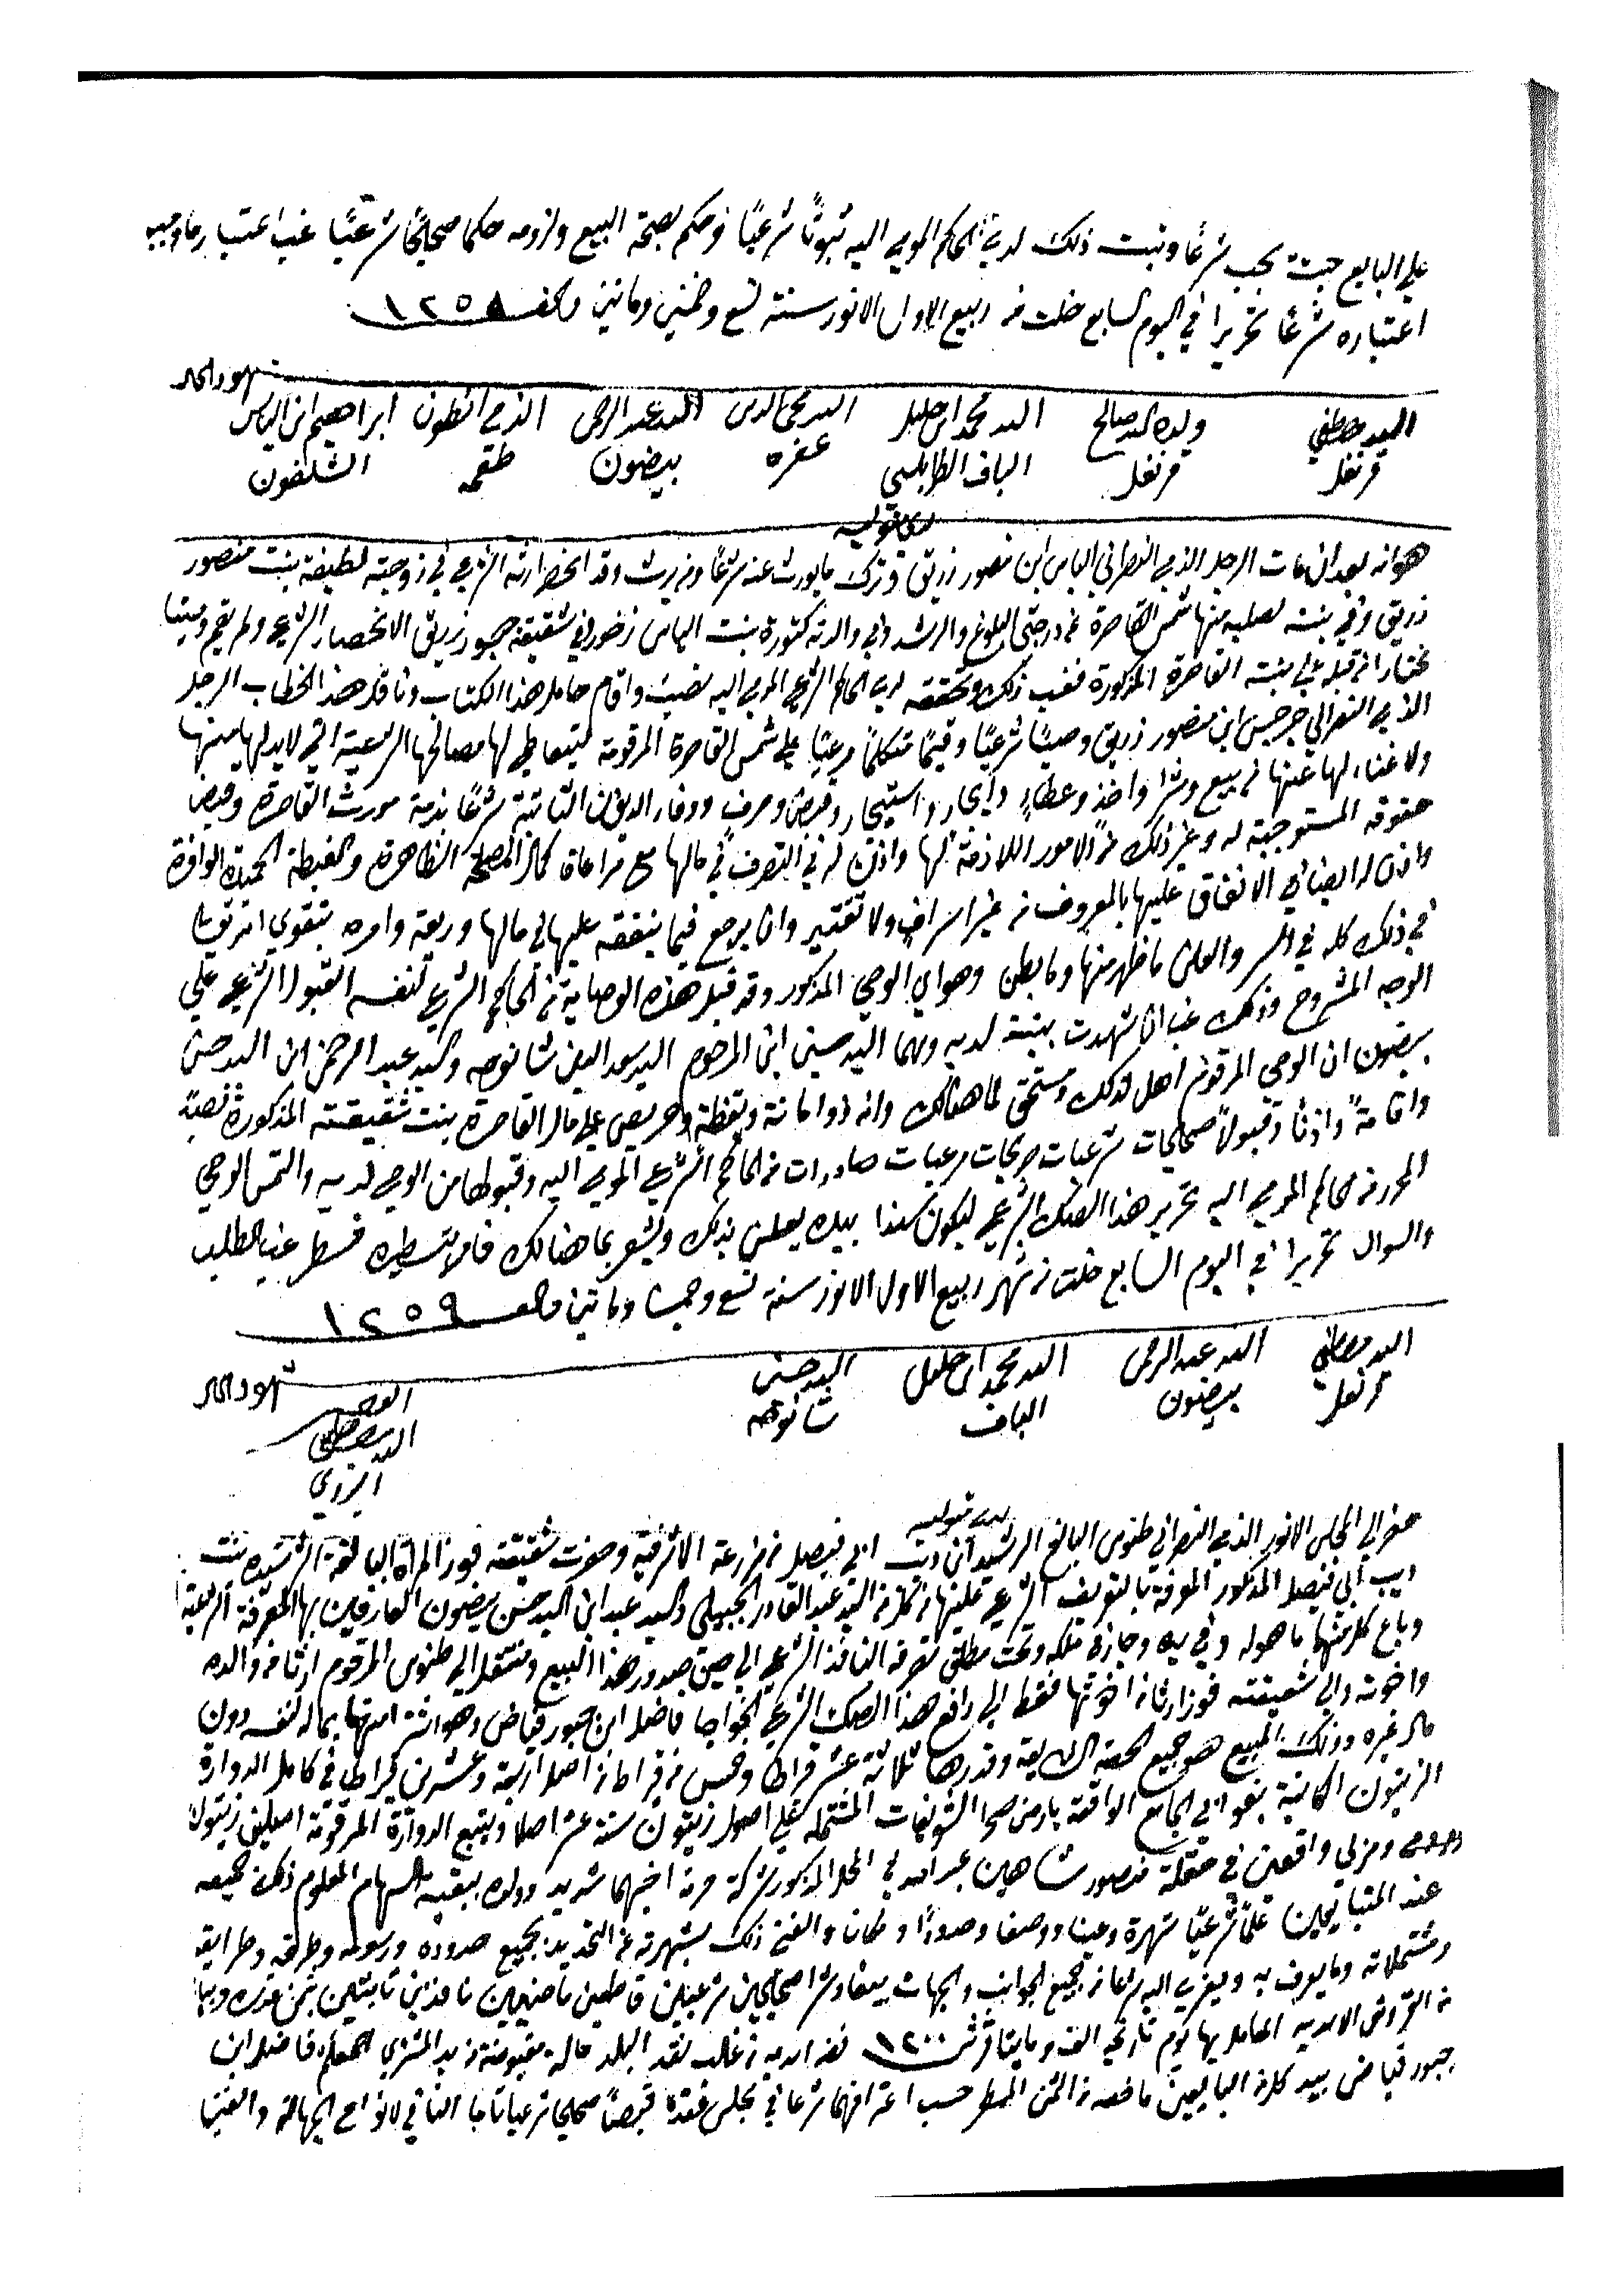 على البايع حيث يجب شرعًا وثبت ذلك لدى الحاكم المومى اليه ثبوتًا شرعيًا وحكم بصحة البيع ولزومه حكما صحيحًا شرعيًا غب اعتبار ما وجب
اعتباره شرعًا تحريرا في اليوم السابع خلت من ربيع الاول الانور سنة تسع وخمسين ومايتين والف ١٢٥٨
شهود الحال
السيد مصطفى قرنفل
ولده السيد صالح قرنفل
السيد محمد ابن خليل الباف الطرابلسي
السيد محي الدين عفره
السيد عبد الرحمن بيضون
الذمي انطون طقمه
ابراهيم ابن الياس الشلفون
هو انه بعد ان مات الرجل الذمي النصراني الياس ابن منصور زريق وترك ما يورث عنه شرعًا ومن يرث وقد انحصر ارثه الشرعي في زوجته لطيفة بنت منصور
زريق وفي بنته لصلبه منها شمس القاصرة عن درجتي البلوغ والرشد وفي والدته كتورة بنت الياس وفي شقيقه جبور زريق الانحصار الشرعي ولم يقم وصيًا
مختارا من قبله على بنته القاصرة المذكورة فغب ذلك وتحققه لدى الحاكم الشرعي المومى اليه نصب واقام حامل هذا الكتاب وناقل هذا الخطاب الرجل
الذمي النصراني جرجس ابن منصور زريق وصيًا شرعيًا وقيمًا متكلمًا مرعيًا على شمس القاصرة المرقومة ليتعاطى لها مصالحها الشرعية التي لا بد لها منها
ولا غناء لها عنها من بيع وشرا واخذ وعطاء وايجار واستيجار وقبض وصرف ووفاء الديون الثابتة شرعًا بذمة مورث القاصرة وقبض
حقوقه المستوجبة له وغير ذلك من الامور اللازمة لها واذن له في التصرف في مالها مع مراعاة كمال المصلحة الظاهرة والغبطة الحميدة الوافرة
واذن له ايضا في الانفاق عليها بالمعروف من غير اسراف ولا تقتير وان يرجع فيما ينفقه عليها في مالها وريعه وامره بتقوى الله تعالى
في ذلك كله في السر والعلن ما ظهر منها وما بطن وهو اي الوصي المذكور وقد قبل هذه الوصاية من الحاكم الشرعي لنفسه القبول الشرعي على
الوجه المشروح وذلك غب ان شهدت بينة لديه وهما السيد حسين ابن المرحوم السيد سعد الدين شانوحه والسيد عبد الرحمن ابن السيد حسن
بيضون ان الوصي المرقوم اهل لذلك ومستحق لما هنالك وانه ذو امانة ويقظة وحريص على مال القاصرة بنت شقيقته المذكورة نصبًا
واقامةً واذنًا وقبولًا صحيحات شرعيات صريحات مرعيات صادرات من الحاكم الشرعي المومى اليه وقبولها من الوصي لديه والتمس الوصي
المحرر من الحاكم المومى اليه تحرير هذا الصك الشرعي ليكون سندا بيده يعلن بذلك ويشعر بما هنالك فامر بتسطيره فسطر غب الطلب
والسوال تحريرا في اليوم السابع خلت من شهر ربيع الاول الانور سنة تسع وخمسين ومايتين والف ١٢٥٩
شهود الحال
السيد مصطفى قرنفل
السيد عبد الرحمن بيضون
السيد محمد ابن خليل الباف
السيد حسن شانوحه
السيد مصطفى
حضر الى المجلس الانور الذمي النصراني طنوس البالغ الرشيد ابن ديب ابي فيصل من مزرعة الاشرفية وحضرت شقيقته فوز المراة البالغة الرشيدة بنت
ديب ابي فيصل المذكور المعرفة بالتعريف الشرعي عليها من كل من السيد عبد القادر الجبيلي والسيد عبد ابن السيد حسن بيضون العارفين بها المعرفة الشرعية
وباع كل منهما ما هو له وفي يده وجاز في ملكه وتحت مطلق تصرفه النافذ الشرعي الى حين صدور هذا البيع ومنتقل الى طنوس المرقوم ارثا من والده
واخوته والى شقيقته فوز ارثا من اخوتها فقط الى رافع هذا الصك الشرعي الخواجا فاضل ابن جبور فياض وهو اشترى منهما بماله لنفسه دون
مال غيره وذلك المبيع هو جميع الحصة الشايعة وقدرها ثلاثة عشر قيراطا وخمس من قيراط من اصل اربعة وعشرين قيراطا في كامل الدوارة
الزيتون الكاينة الواقعة بارض صحرا الشويفات المشتملة على اصول زيتون ستة عشر اصلا ويتبع الدوارة المرقومة اصلين زيتون
واقعين في حقلة منصور شاهين عبد الله في المحل المذكور شركة بقية السهام المعلوم ذلك جميعه
عند المتبايعين علمًا شرعيًا شهرة وعينا ووصفا وحدودًا ومكانا والغني ذلك بشهرته عن التحديد بجميع حدوده ورسومه وطرقه وطرايقه
ومشتملاته وما يعرف به ويعزى اليه شرعا من جميع الجوانب والجهات بيعا وشرا صحيحين شرعيين قاطعين ماضيين نافذين ثابتين بثمن قدره وبيانه
من القروش الاسدية المتعامل بها يوم تاريخه الف ومايتا قرش ١٢٠٠ فضة اسدية من غالب نقد البلد حالة مقبوضة من يد المشتري المعلم فاضل ابن
جبور فياض بيد كل من البايعين ما خصه من الثمن المسطر حسب اعترافهما شرعا في مجلس عقده قبضًا صحيحا شرعيا تاما النافي لانواع الجهالة والغبن